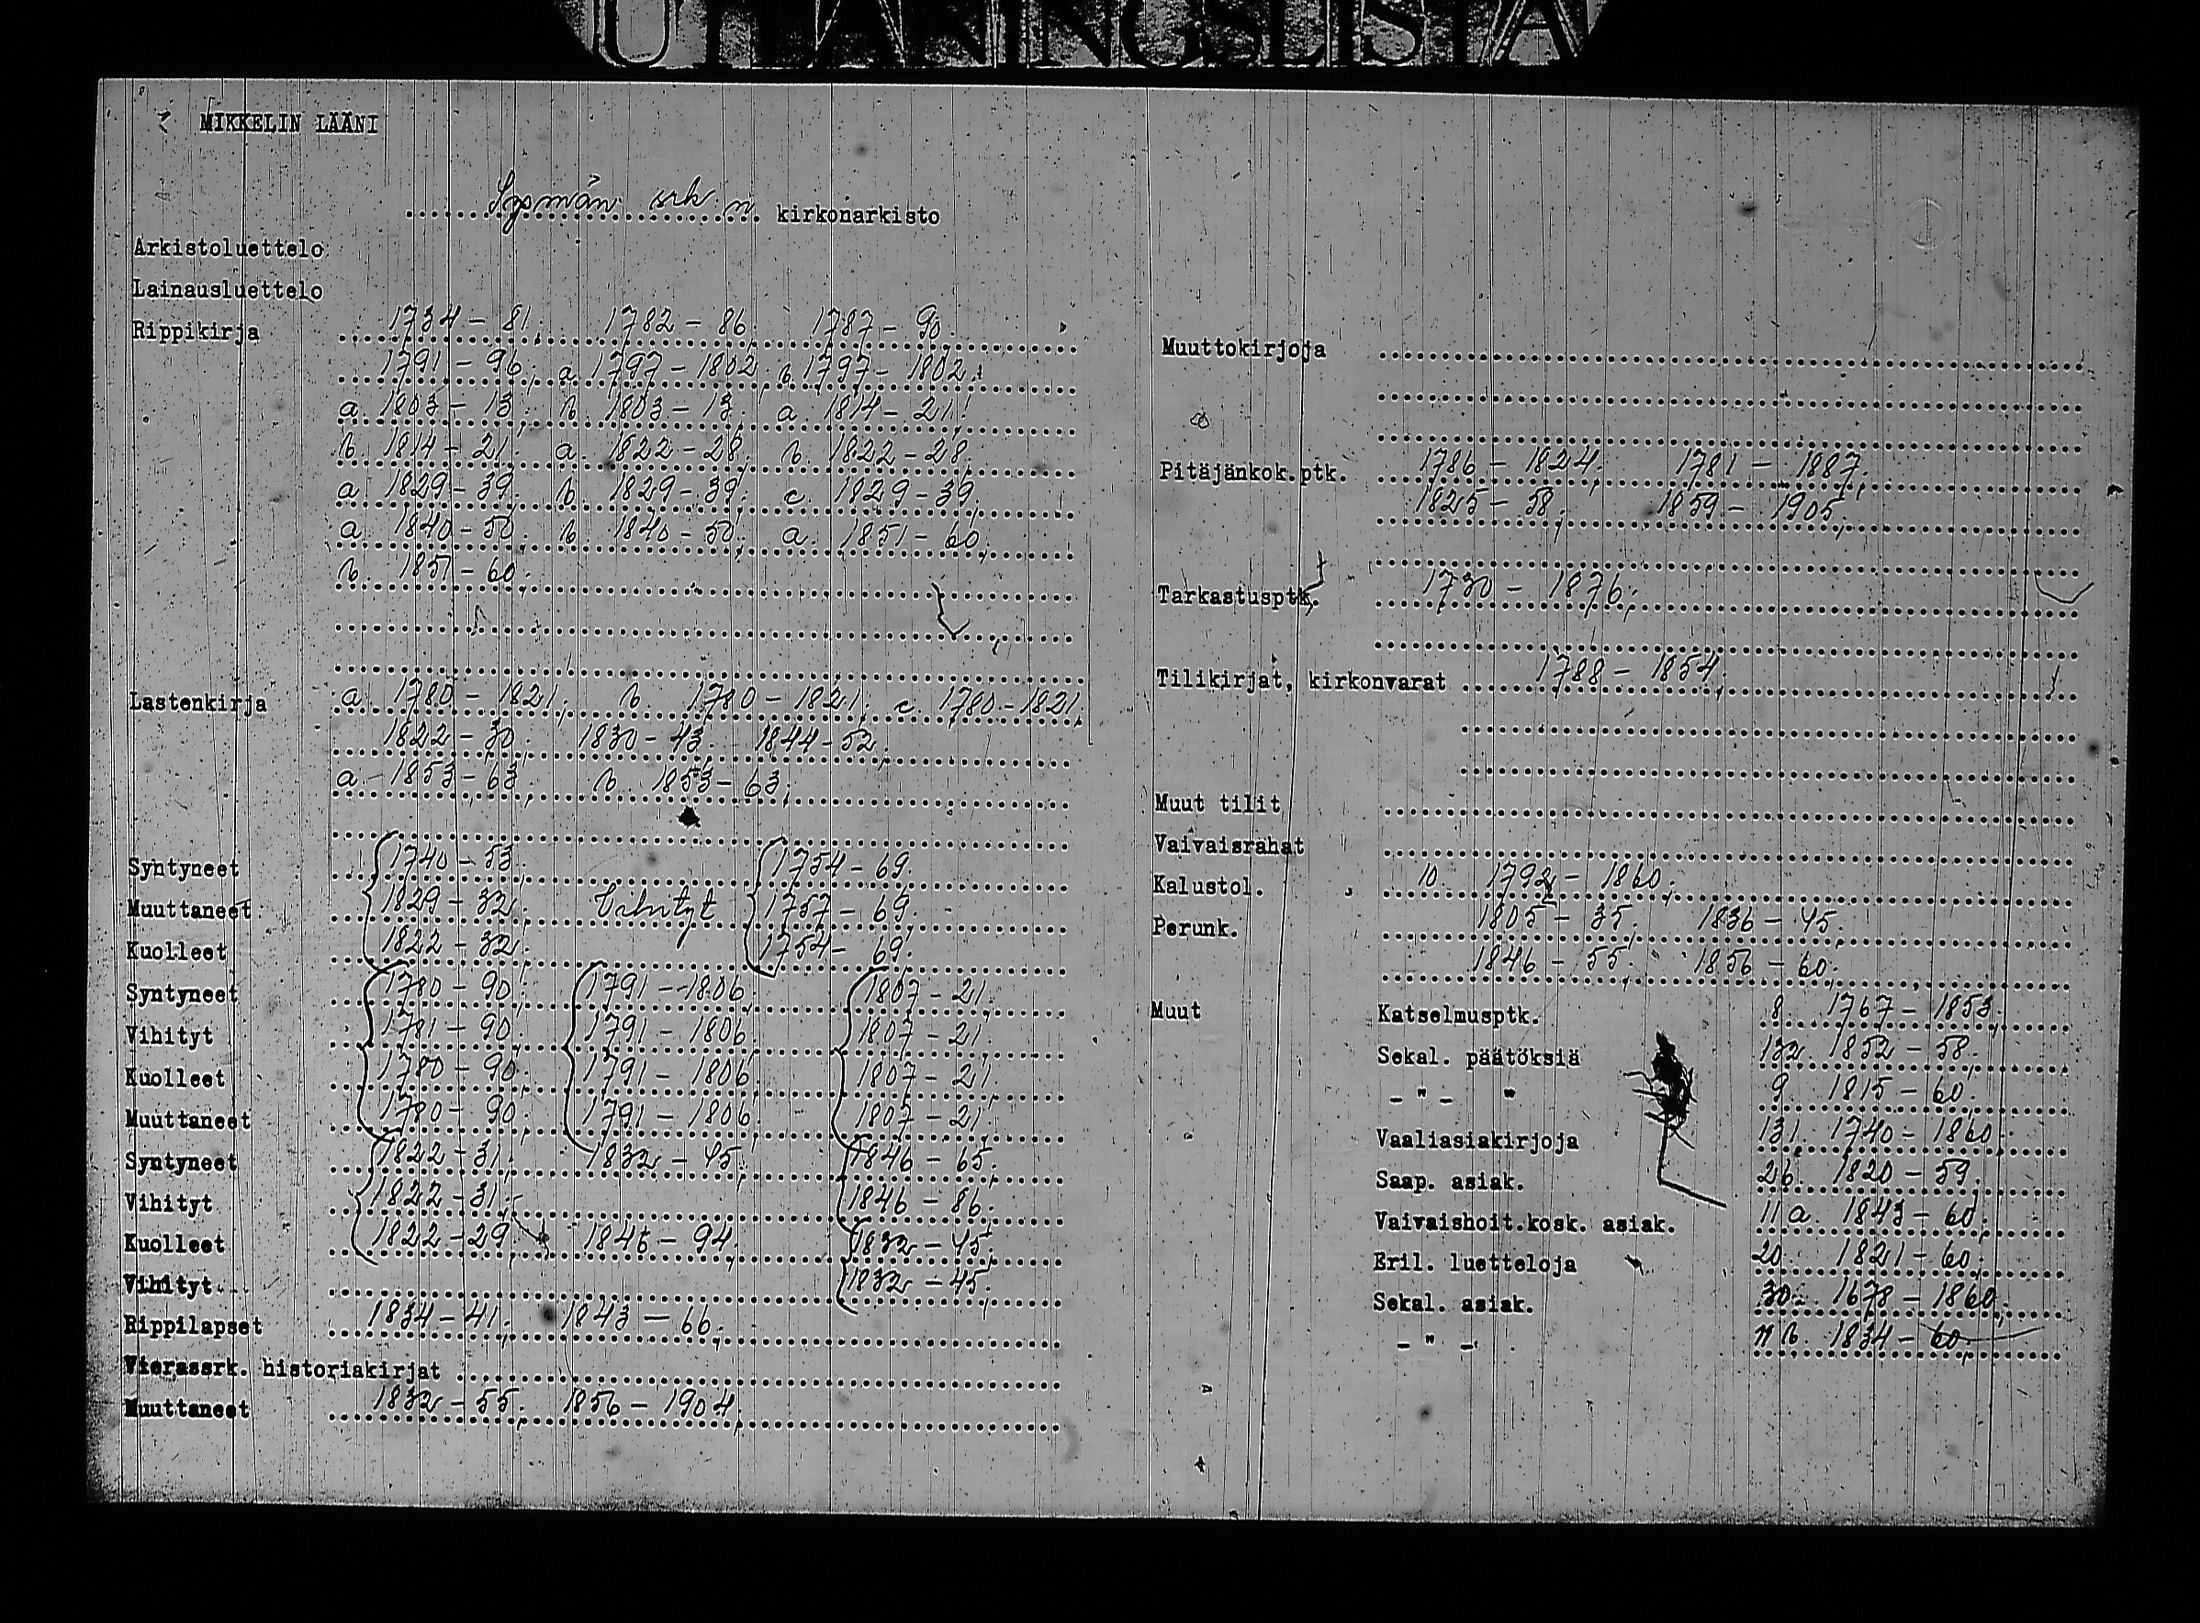 UTLÅNINGSLISTA
MIKKELIN LÄÄNI
Sysmän srk:n kirkonarkisto
Arkistoluettelo
Lainausluettelo
Rippikirja 1734 - 81; 1782 - 86; 1787 - 90;
1791 - 96; a. 1797 - 1802; b. 1797 - 1802;
a. 1803 - 13; b. 1803 - 13; a. 1814 - 21;
b. 1814 - 21; a. 1822 - 28; b. 1822 - 28;
a. 1829 - 39; b. 1829 - 39; c. 1829 - 39;
a. 1840 - 50; b. 1840 - 50; a. 1851 - 60;
b. 1851 - 60;
Lastenkirja a. 1780 - 1821; b. 1780 - 1821; c. 1780 - 1821;
1822 - 30; 1830 - 43; 1844 - 52;
a. 1853 - 63; b. 1853 - 63;
Syntyneet 1740 - 53; 1754 - 69;
Muuttaneet 1829 - 32; Vihityt 1757 - 69;
Kuolleet 1822 - 32; 1754 - 69;
Syntyneet 1780 - 90; 1791 - 1806; 1807 - 21;
Vihityt 1781 - 90; 1791 - 1806; 1807 - 21;
Kuolleet 1780 - 90; 1791 - 1806; 1807 - 21;
Muuttaneet 1780 - 90; 1791 - 1806; 1807 - 21;
Syntyneet 1822 - 31; 1832 - 45; 1846 - 65;
Vihityt 1822 - 31; 1846 - 86;
Kuolleet 1822 - 29; 1846 - 94; 1832 - 45;
Vihityt 1832 - 45;
Rippilapset 1834 - 41; 1843 - 66;
Vierassrk. historiakirjat
Muuttaneet 1832 - 55; 1856 - 1904;
Muuttokirjoja
Pitäjänkok.ptk. 1786 - 1824; 1781 - 1887;
1825 - 58; 1859 - 1905;
Tarkastusptk. 1730 - 1876;
Tilikirjat, kirkonvarat 1788 - 1854;
Muut tilit
Vaivaisrahat
Kalustol. 10. 1792 - 1860;
Perunk. 1805 - 35; 1836 - 45;
1846 - 55; 1856 - 60;
Muut Katselmusptk. 8. 1767 - 1853;
Sekal. päätöksiä 132. 1852 - 58;
- " - " 9. 1815 - 60;
Vaaliasiakirjoja 131. 1740 - 1860;
Saap. asiak. 26. 1820 - 59;
Vaivaishoit.kosk. asiak. 11 a. 1843 - 60;
Eril. luetteloja 20. 1821 - 60;
Sekal. asiak. 30. 1678 - 1860;
- " - 11 b. 1834 - 60;